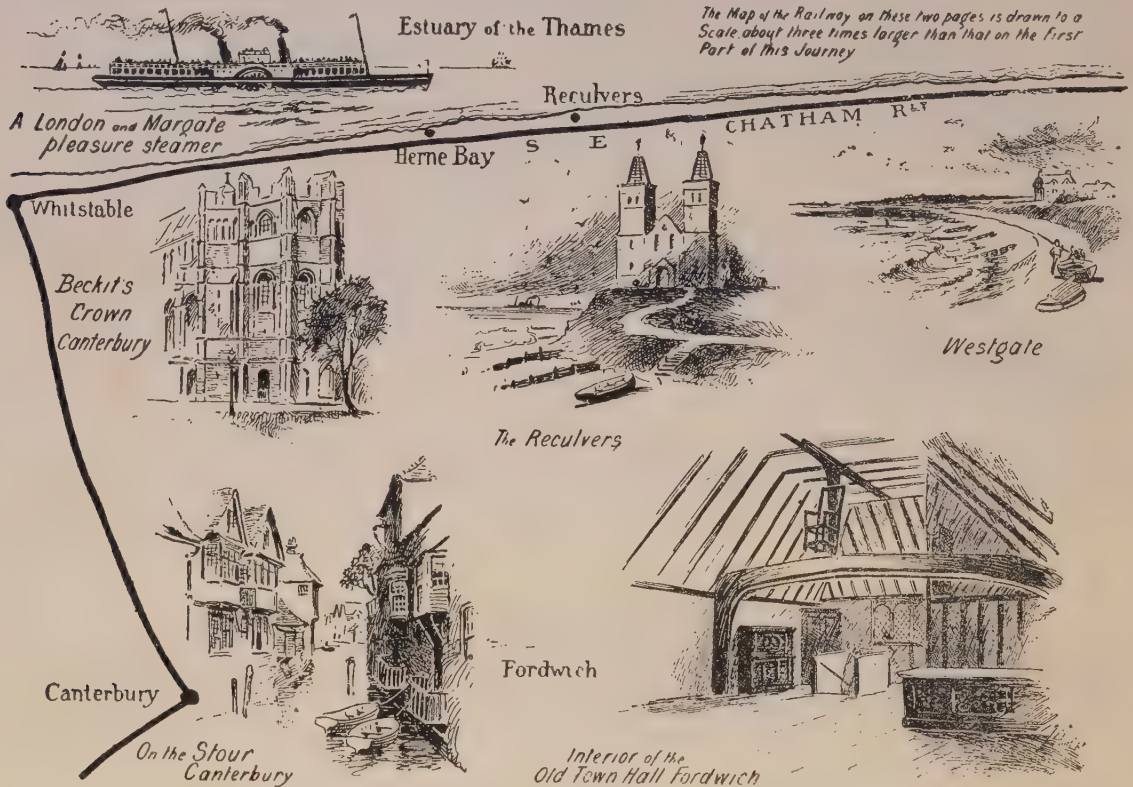 Estuary of the Thames
The Map of the Railway on these two pages is drawn to a
Scale about three times larger than that on the First
Part of this Journey
A London and Margate
pleasure steamer
Reculvers
Herne Bay
S E & CHATHAM RLY
Whitstable
Beckit's
Crown
Canterbury
Westgate
The Reculvers
Canterbury
Fordwich
On the Stour
Canterbury
Interior of the
Old Town Hall Fordwich